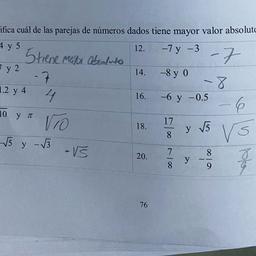 ifica cuál de las parejas de números dados tiene mayor valor absoluto
4 y 5
5 tiene mayor absoluto
12. −7 y −3
-7
y 2
-7
14. −8 y 0
-8
1.2 y 4
4
16. −6 y −0.5
-6
10 y π
√10
18. 17/8 y √5
√5
√5 y −√3
-√5
20. 7/8 y −8/9
76